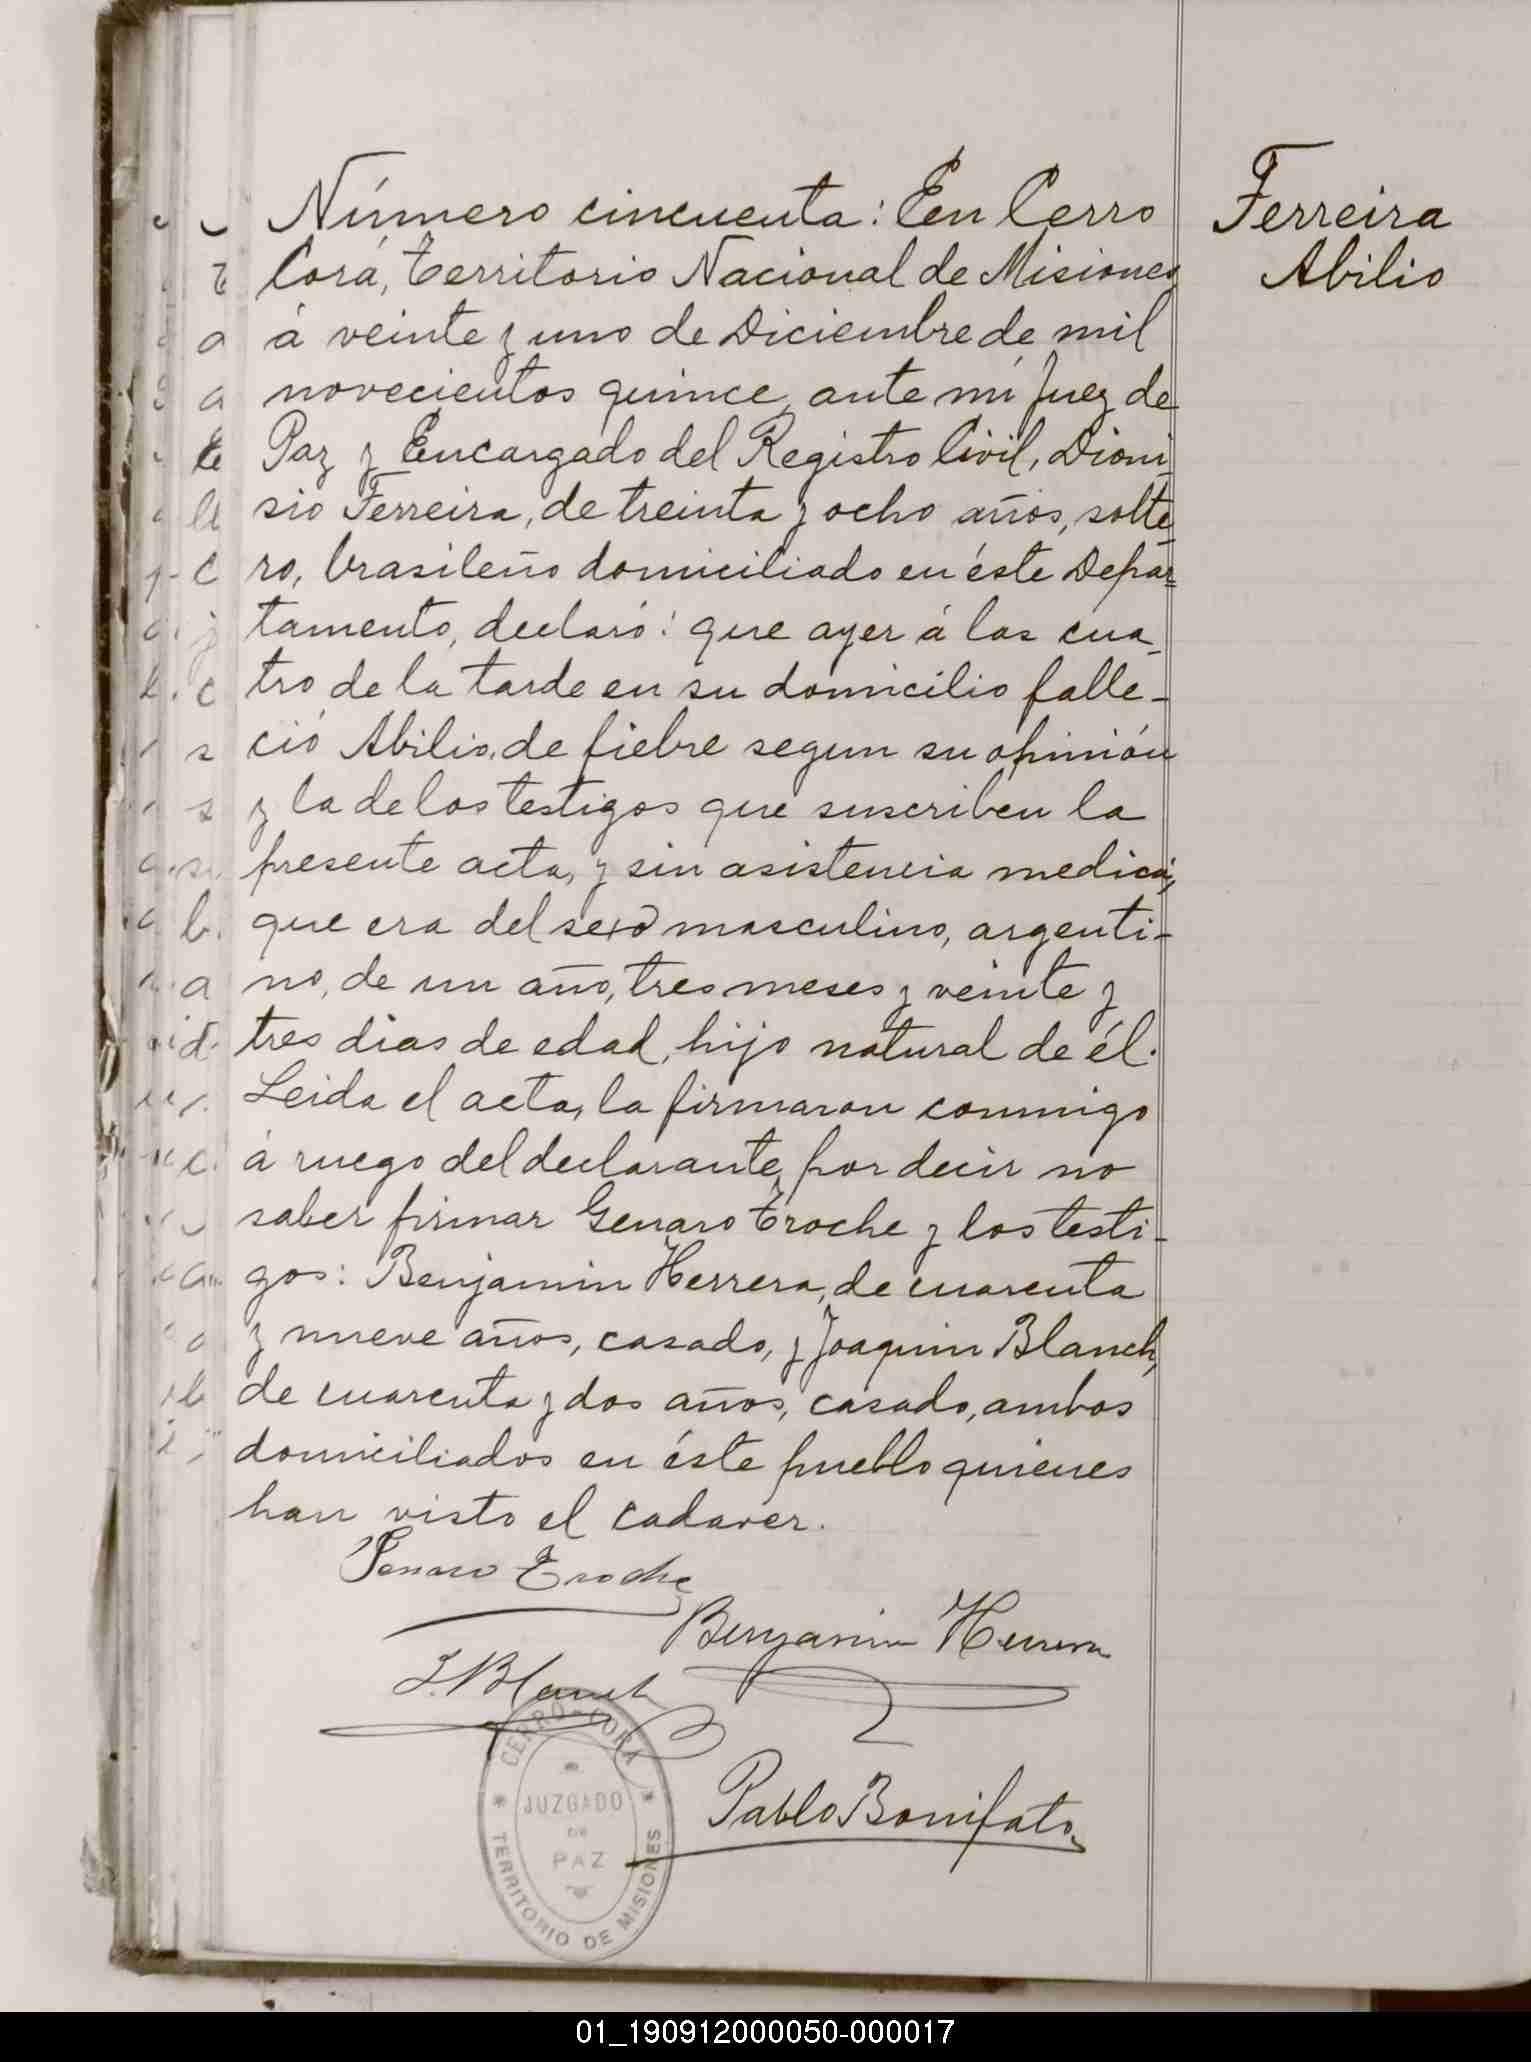 Número cincuenta: En Cerro
Corá, Territorio Nacional de Misiones
á veinte y uno de Diciembre de mil
novecientos quince, ante mi Juez de
Paz y Encargado del Registro Civil, Dioni
sio Ferreira, de treinta y ocho años, solte
ro, brasileño domiciliado en éste Depar=
tamento, declaró: que ayer á las cua
tro de la tarde en su domicilio falle-
ció Abilio, de fiebre segun su opinión
y la de los testigos que suscriben la
presente acta, y sin asistencia medica,
que era del sexo masculino, argenti-
no, de un año, tres meses y veinte y
tres dias de edad, hijo natural de él.
Leida el acta, la firmaron conmigo
á ruego del declarante, por decir no
saber firmar Genaro Troche y los testi-
gos: Benjamin Herrera, de cuarenta
y nueve años, casado, y Joaquin Blanch,
de cuarenta y dos años, casado, ambos
domiciliados en éste pueblo quienes
han visto el cadaver.
Genaro Troche
Benjamin Herrera
J. Blanch
Pablo Bonifato
Ferreira
Abilio
CERRO-CORÁ
JUZGADO
DE
PAZ
TERRITORIO DE MISIONES
01_190912000050-000017